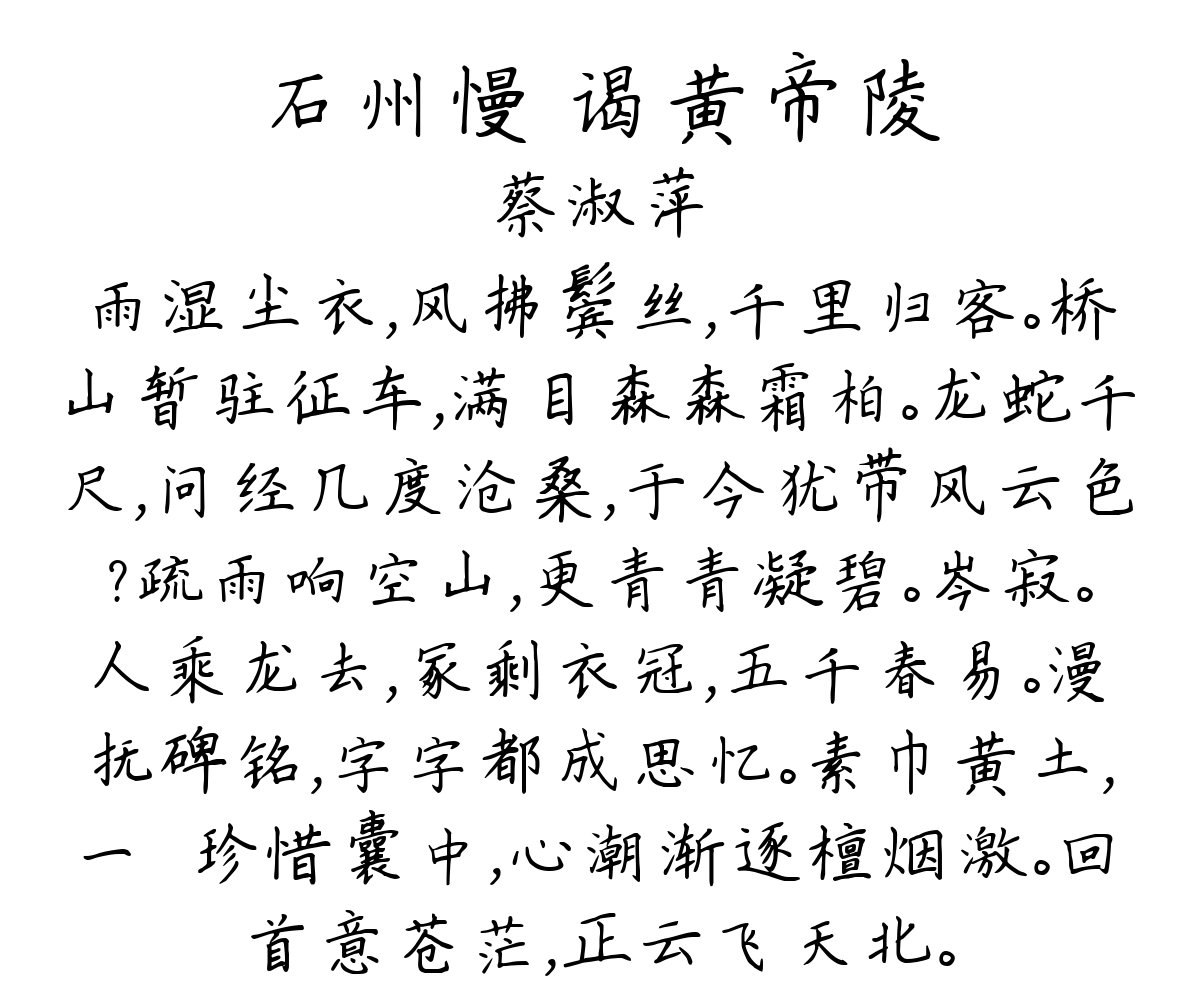 石州慢 谒黄帝陵
蔡淑萍
雨湿尘衣,风拂鬓丝,千里归客。桥
山暂驻征车,满目森森霜柏。龙蛇千
尺,问经几度沧桑,于今犹带风云色
?疏雨响空山,更青青凝碧。岑寂。
人乘龙去,冢剩衣冠,五千春易。漫
抚碑铭,字字都成思忆。素巾黄土,
一 珍惜囊中,心潮渐逐檀烟激。回
首意苍茫,正云飞天北。